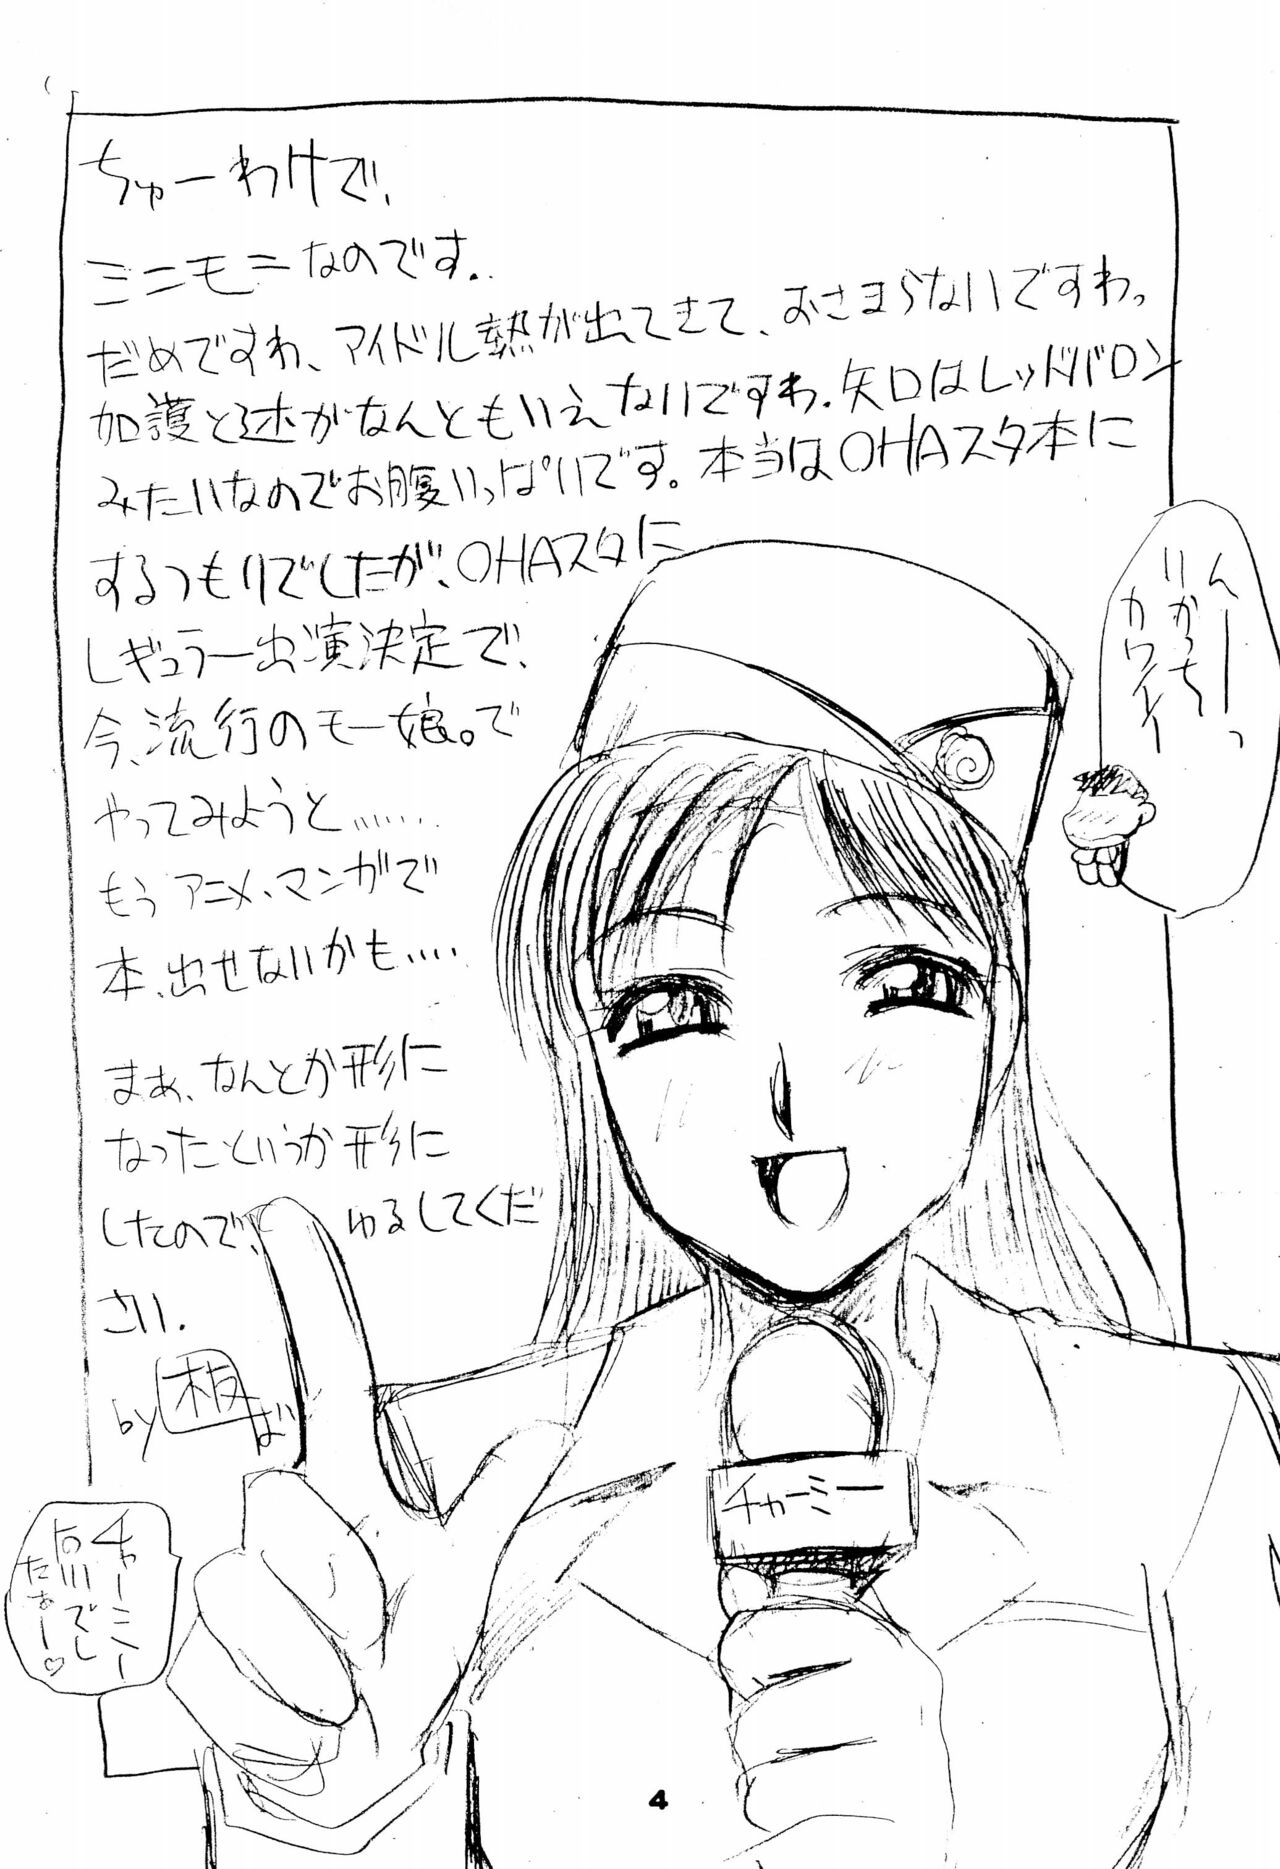 ちゅーわけで、
ミニモニなのです。
だめですわ、アイドル熱が出てきて、おさまらないですわっ
加護と辻がなんともいえないですわ。矢口はレッドバロン
みたいなのでお腹いっぱいです。本当はOHAスタ本に
するつもりでしたが、OHAスタに
レギュラー出演決定で、
今、流行のモー娘。で
やってみようと……
もうアニメ、マンガで
本、出せないかも‥‥
まぁ、なんとか形に
なったというか形に
したので、ゆるしてくだ
さい。
by 板ば
んーーっ
りかっち
カワイイ
チャーミー
石川でし
たぁー♡
チャーミー
4